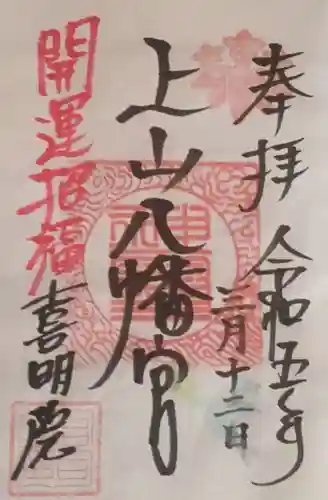 奉拝
令和五年
三月十二日
上山八幡宮
開運招福
喜明